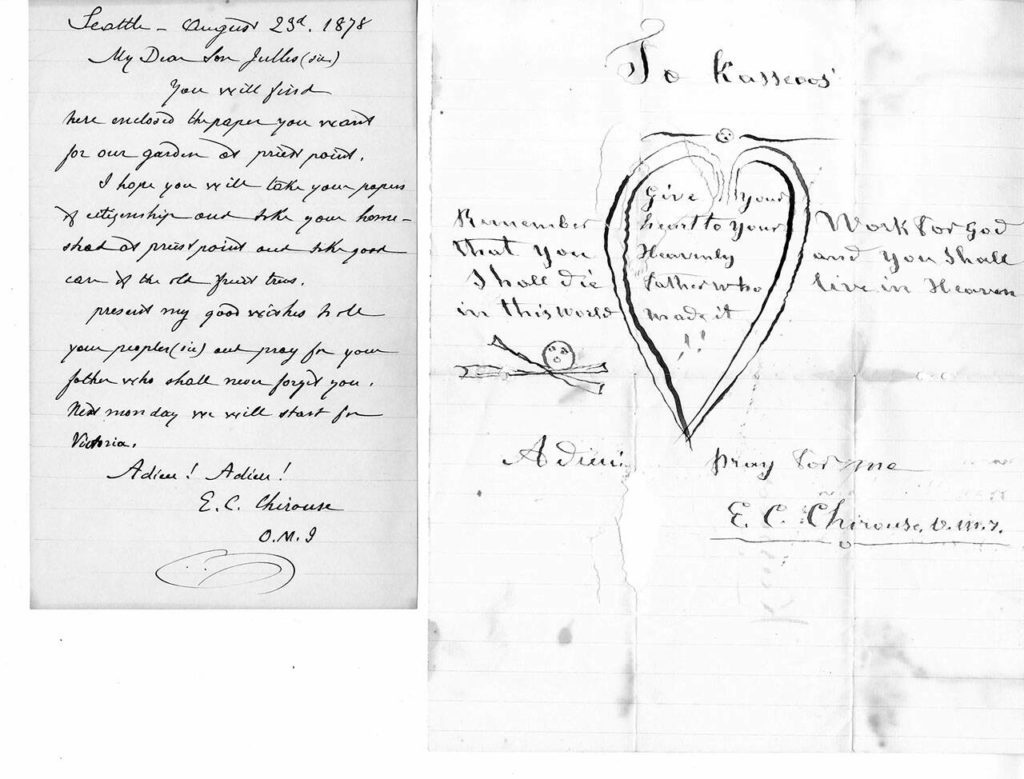 Seattle - August 23d. 1878
My Dear Son Julles (sic)
You will find
here enclosed the paper you want
for our garden at priest point.
I hope you will take your papers
of citizenship and take your home-
stad at priest point and take good
care of the old fruit trees.
present my good wishes to all
your peoples (sic) and pray for your
father who shall never forget you.
Next monday we will start for
Victoria.
Adieu! Adieu!
E. C. Chirouse
O.M.I
To
Give your
heart to your
Heavenly
father who
made it
Remember
that you
Shall die
in this world
Work for God
and you Shall
live in Heaven
Adieu
pray for me
E. C. Chirouse, o.m.I.